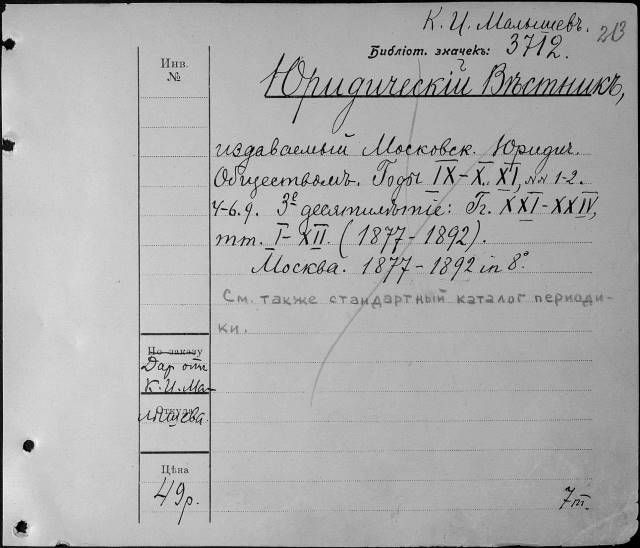 К. И. Малышевъ.
213
Библіот. значекъ: 3712.
Инв.
№
Юридическій Вѣстникъ,
издаваемый Московск. Юридич.
Обществомъ. Годы IX-X, XI, №№ 1-2.
4-6. 9. 3е десятилѣтіе: Гг. XXI-XXIV,
тт. I-XII. (1877-1892).
Москва. 1877-1892 in 8°.
См. также стандартный каталог периоди-
ки.
По заказу
Дар отъ
К. И. Ма-
Откуда
лышева.
Цѣна
49р.
7т